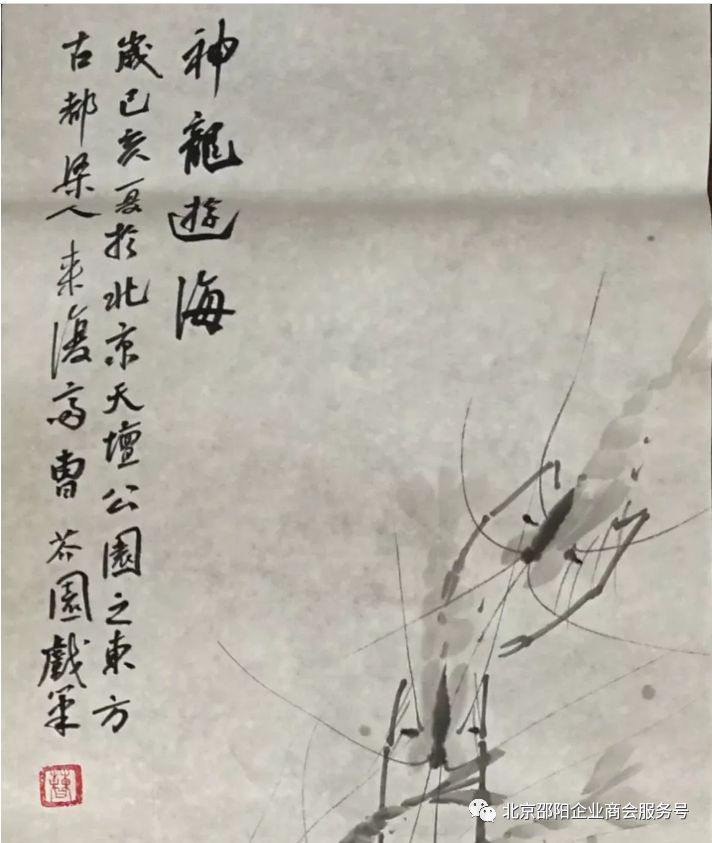 神龍遊海
歲己亥夏於北京天壇公園之東方
古都梁人来復斋曹芥園戲筆
曹
北京邵阳企业商会服务号